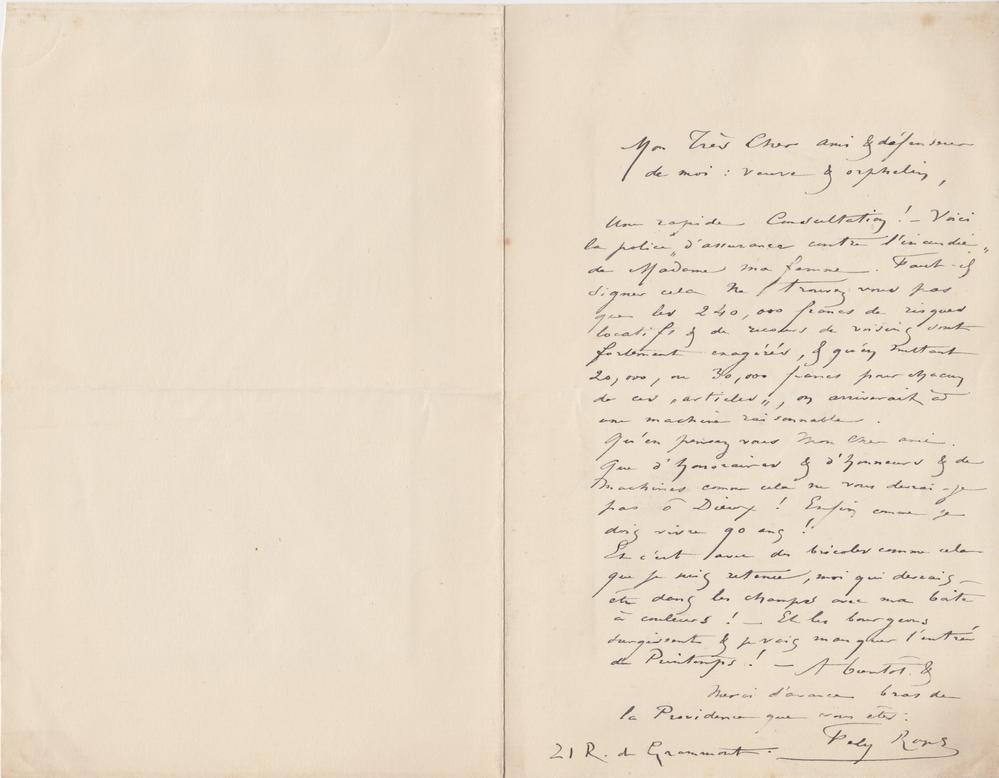 Mon Très Cher ami & défenseur
de moi : veuve & orphelin,
Une rapide Consultation ! – Voici
la police „d'assurance contre l'incendie„
de Madame ma femme. Faut-il
signer cela Ne trouvez vous pas
que les 240,000 francs de risques
locatifs & de recours de voisins sont
fortement exagérés, & qu'en mettant
20,000, ou 30,000 francs pour chacun
de ces „articles„, on arriverait à
une machine raisonnable.
Qu'en pensez vous Mon Cher ami.
Que d'honoraires & d'honneurs & de
Machines comme cela ne vous devrai-je
pas ô Dieux ! Enfin comme je
dois vivre 90 ans !
Et c'est avec des bricoles comme cela
que je suis retenu, moi qui devrais
être dans les champs avec ma boîte
à couleurs ! – Et les bourgeons
surgissent & je vais manquer l'entrée
du Printemps ! – A bientôt &
Merci d'avance bras de
la Providence que vous êtes.
Fély Rops
21 R. de Grammont.